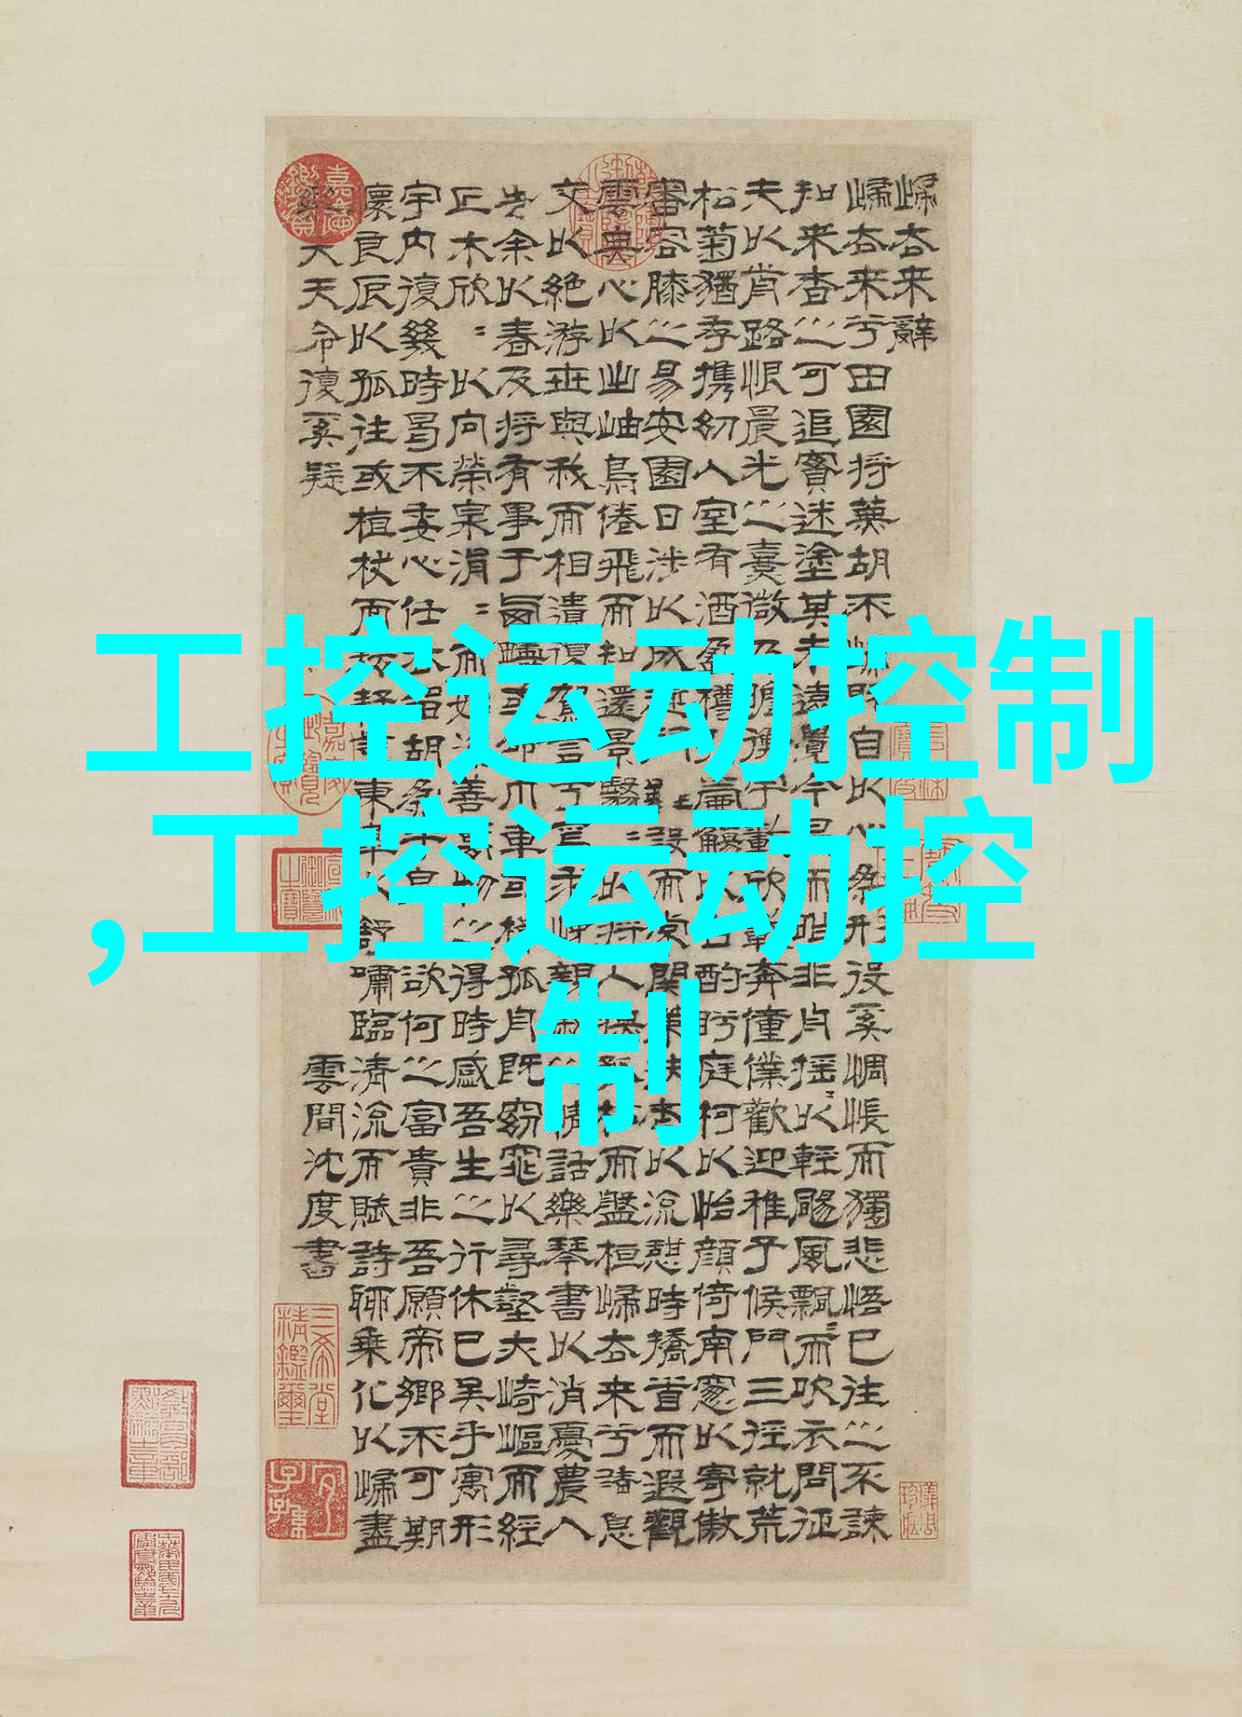 工控运动控制
,工控运动控
制
歸去來辭
歸去來兮田園將蕪胡不歸既自以心為形役奚惆悵而獨悲悟已往之不諫
知來者之可追實迷塗其未遠覺今是而昨非舟搖〻以輕颺風飄〻而吹衣問征
夫以前路恨晨光之熹微乃瞻衡宇載欣載奔僮僕歡迎稚子候門三徑就荒
松菊猶存攜幼入室有酒盈樽引壺觴以自酌眄庭柯以怡顏倚南窻以寄傲
審容膝之易安園日涉以成趣門雖設而常關策扶老以流憩時矯首而遐觀
雲無心以出岫鳥倦飛而知還景翳〻以將入撫孤松而盤桓歸去來兮請息
交以絕游世與我而相遺復駕言兮焉求悅親戚之情話樂琴書以消憂農人
告余以春及將有事于西疇或命巾車或棹孤舟既窈窕以尋壑亦崎嶇而經
丘木欣〻以向榮泉涓〻而始流善萬物之得時感吾生之行休已矣乎寓形
宇內復幾時曷不委心任去留胡為乎遑〻欲何之富貴非吾願帝鄉不可期
懷良辰以孤往或植杖而耘耔登東皋以舒嘯臨清流而賦詩聊乘化以歸盡
樂夫天命復奚疑
雲間沈度書
三希堂精鑑璽